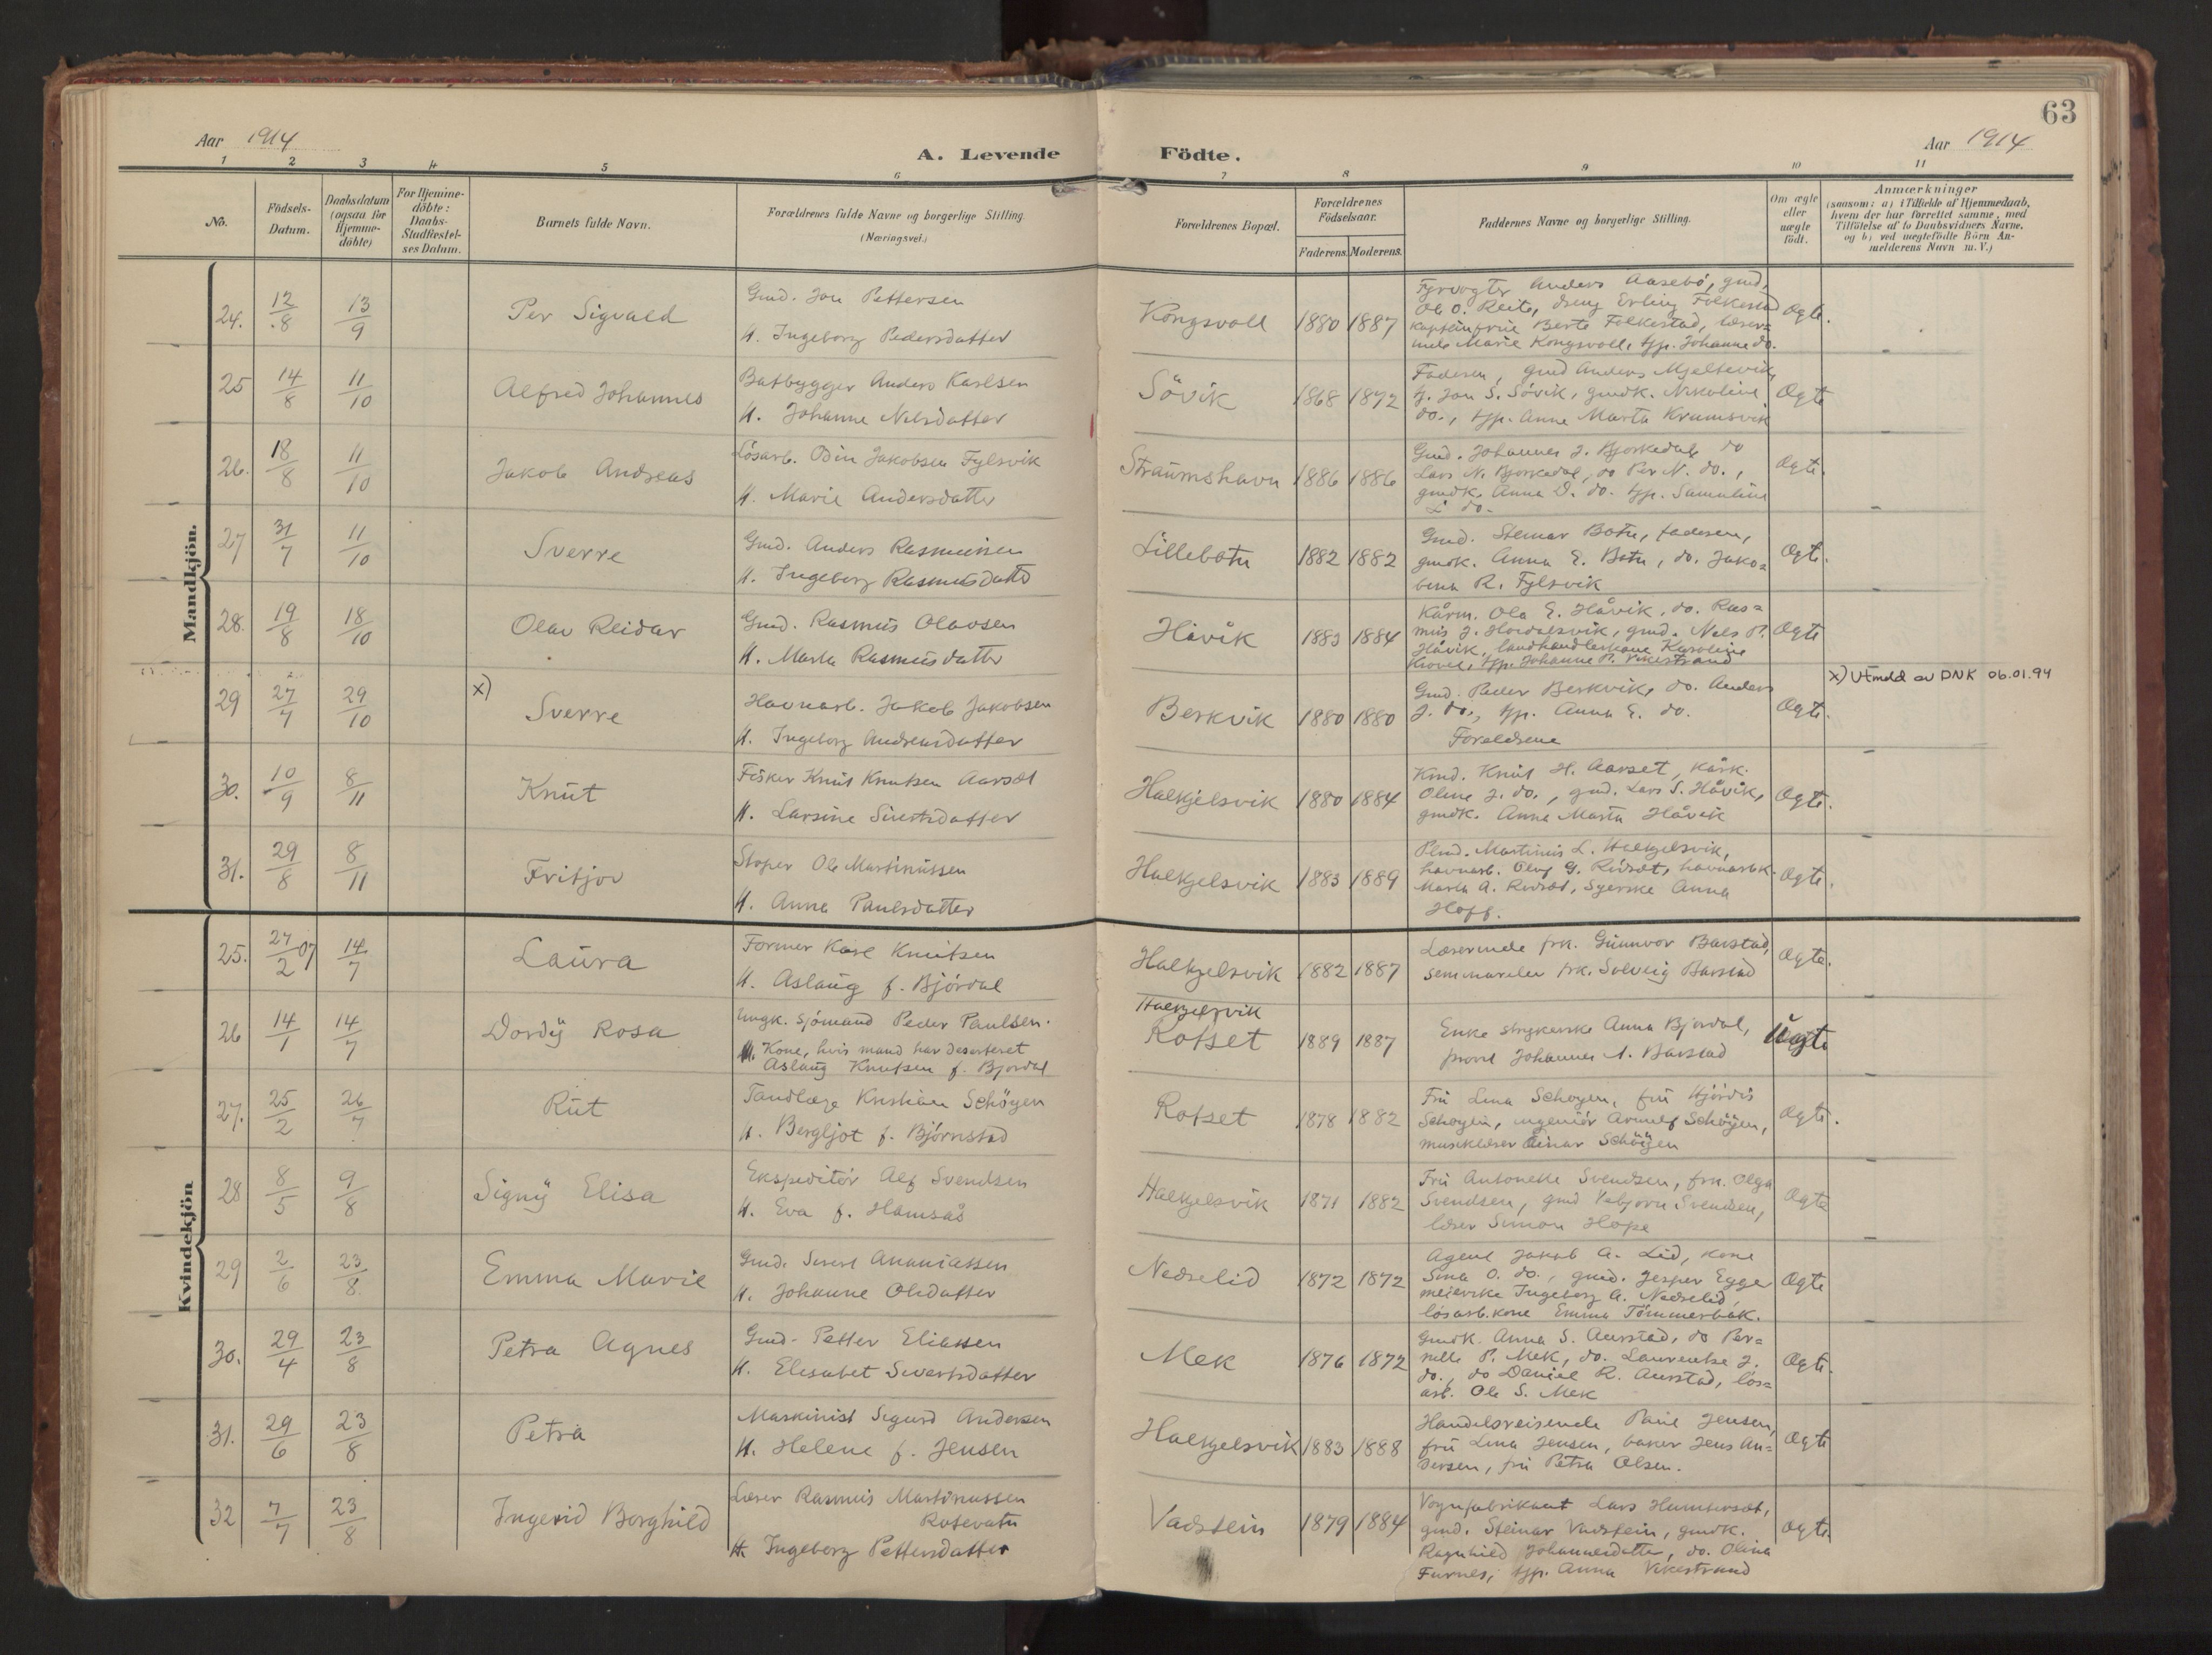 63
Aar 1914
A. Levende Födte.
Aar 1914
1 2 3 4 5 6 7 8 9 10 11
No.
Födsels-
Datum.
Daabsdatum
(ogsaa for
Hjemme-
döbte)
For Hjemme-
döbte:
Daabs-
Stadfæstel-
ses Datum.
Barnets fulde Navn.
Forældrenes fulde Navne og borgerlige Stilling.
(Næringsvei.)
Forældrenes Bopæl.
Forældrenes
Födselsaar.
Faderens. Moderens.
Faddernes Navne og borgerlige Stilling.
Om ægte
eller
uægte
født.
Anmærkninger
(saasom: a) i Tilfælde af Hjemmedaab,
hvem der har forrettet samme, med
Tilföielse af to Daabsvidners Navne.
og b) ved uægtefödte Börn An-
melderens Navn m. V.)
Mandkjön.
24. 12/8 13/9 Per Sigvald
Gmd. Jon Pettersen
H. Ingeborg Pedersdatter
Kongsvoll 1880 1887
Fyrvogter Anders Aasebö, gmd.
Ole O. Reite, dreng Erling Folkestad
kapteinfrue Berte Folkestad, læser=
inde Marie Kongsvoll, tjp. Johanne do.
Ogte.
25 14/8 11/10 Alfred Johannes
Batbygger Anders Karlsen
H. Johanne Nilsdatter
Sövik 1868 1872
Faderen, gmd Anders Mjeltevik,
g. Jon S. Sövik, gmdk. Nikoline
do., tjp. Anne Marta Krumsvik
Ogte
26. 18/8 11/10 Jakob Andreas
Lösarb. Odin Jakobsen Fylsvik
H. Marie Andersdatter
Straumshavn 1886 1886
Gmd. Johannes J. Bjorkedal, do
Lars N. Bjorkedal, do Per N. do.,
gmdk. Anna D. do. tjp. Samuline
L do-
Ogte.
27 31/7 11/10 Sverre
Gmd. Anders Rasmussen
H. Ingeborg Rasmusdatter
Lillebotn 1882 1882
Gmd. Steinar Botn, faderen,
gmdk. Anna E. Botn, do. Jako=
bina R. Fylsvik
Ogte.
28. 19/8 18/10 Olav Reidar
Gmd. Rasmus Olavsen
H. Marta Rasmusdatter
Håvik 1883 1884
Kårm. Ola E. Håvik, do. Ras=
mus J. Hovdalsvik, gmd. Nils P.
Håvik, landhandlerkone Karoline
tjp. Johanne P. Vikestrand
Ogte
29 27/7 29/10 x) Sverre
Havnarb. Jakob Jakobsen
H. Ingeborg Andreasdatter
Berkvik 1880 1880
Gmd. Peder Berkvik, do. Anders
J. do., tjp. Anna E. do.
Foreldrene
Ogte.
x) Utmeld av DNK 06.01.94
30. 10/9 8/11 Knut
Fisker Knut Knutsen Aarset
H. Larsine Sivertsdatter
Halkjelsvik 1880 1884
Kmd. Knut H. Aarset, kårk.
Oline J. do., gmd. Lars S. Håvik,
gmdk. Anne Marta Håvik
Ogte.
31. 29/8 8/11 Fritjov
Stoper Ole Martinussen
H. Anna Paulsdatter
Halkjelsvik 1883 1889
Plmd. Martinus L. Halkjelsvik,
havnarb. Oluf G. Rivset, havnarbk.
Marta A. Rivset, syerske Anna
Hoff.
Ogte.
Kvindekjön
25. 27/2 07 14/7 Laura
Former Karl Knutsen
H. Aslaug f. Björdal
Halkjelsvik 1882 1887
Læserinde frk. Gunnvor Barstad,
seminarelev frk. Solveig Barstad
Ogte.
26 14/1 14/7 Dordy Rosa
Ungk. sjömand Peder Paulsen.
Kone, hvis mand har deserteret
Aslaug Knutsen f. Bjordal
Halkjelsvik
Rotset 1889 1887
Enke strykerske Anna Bjordal,
provst Johannes A. Barstad
Uægte
27. 25/2 26/7 Rut
Tandlæge Kristian Schöyen
H. Bergljot f. Björnstad
Rotset 1878 1882
Frú Lina Schoyen, frú Hjördis
Schoyen, ingeniör Arnulf Schöyen,
musiklærer Einar Schöyen
Ogte.
28 8/5 9/8 Signy Elisa
Ekspeditör Alf Svendsen
H. Eva f. Hamsås
Halkjelsvik 1871 1882
Frú Antonette Svendsen, frk. Olga
Svendsen, gmd Vebjorn Svendsen,
lærer Simon Hope
Ogte
29 2/6 23/8 Emma Marie
Gmd. Sivert Ananiassen
H. Johanne Olsdatter
Nedrelid 1872 1872
Agent Jakob A. Lid, kone
Sina O. do., gmd. Jesper Egge
meierske Ingeborg A. Nedrelid,
lösarb.kone Emma Tömmerbak.
Ogte
30. 29/4 23/8 Petra Agnes
Gmd. Petter Eliassen
H. Elisabet Sivertsdatter
Mek 1876 1872
Gmdk. Anna S. Aurstad, do Per=
nille P. Mek, do. Laurentse J.
do., do Daniel R. Aurstad, lös=
arb. Ole S. Mek
Ogte.
31. 29/6 23/8 Petra
Maskinist Sigurd Andersen
H. Helene f. Jensen
Halkjelsvik 1883 1888
Handelsreisende Paul Jensen,
frú Lina Jensen, baker Jens An=
dersen, frú Petra Olsen.
Ogte
32 7/7 23/8 Ingerid Borghild
Lærer Rasmus Martinussen
Rotevatn
H. Ingeborg Pettersdatter
Vadstein 1879 1884
Vognfabrikant Lars Humberset,
gmd. Steinar Vadstein, gmdk.
Ragnhild Johannesdatter, do. Olina
Furnes, tjp. Anna Vikestrand
Ogte.